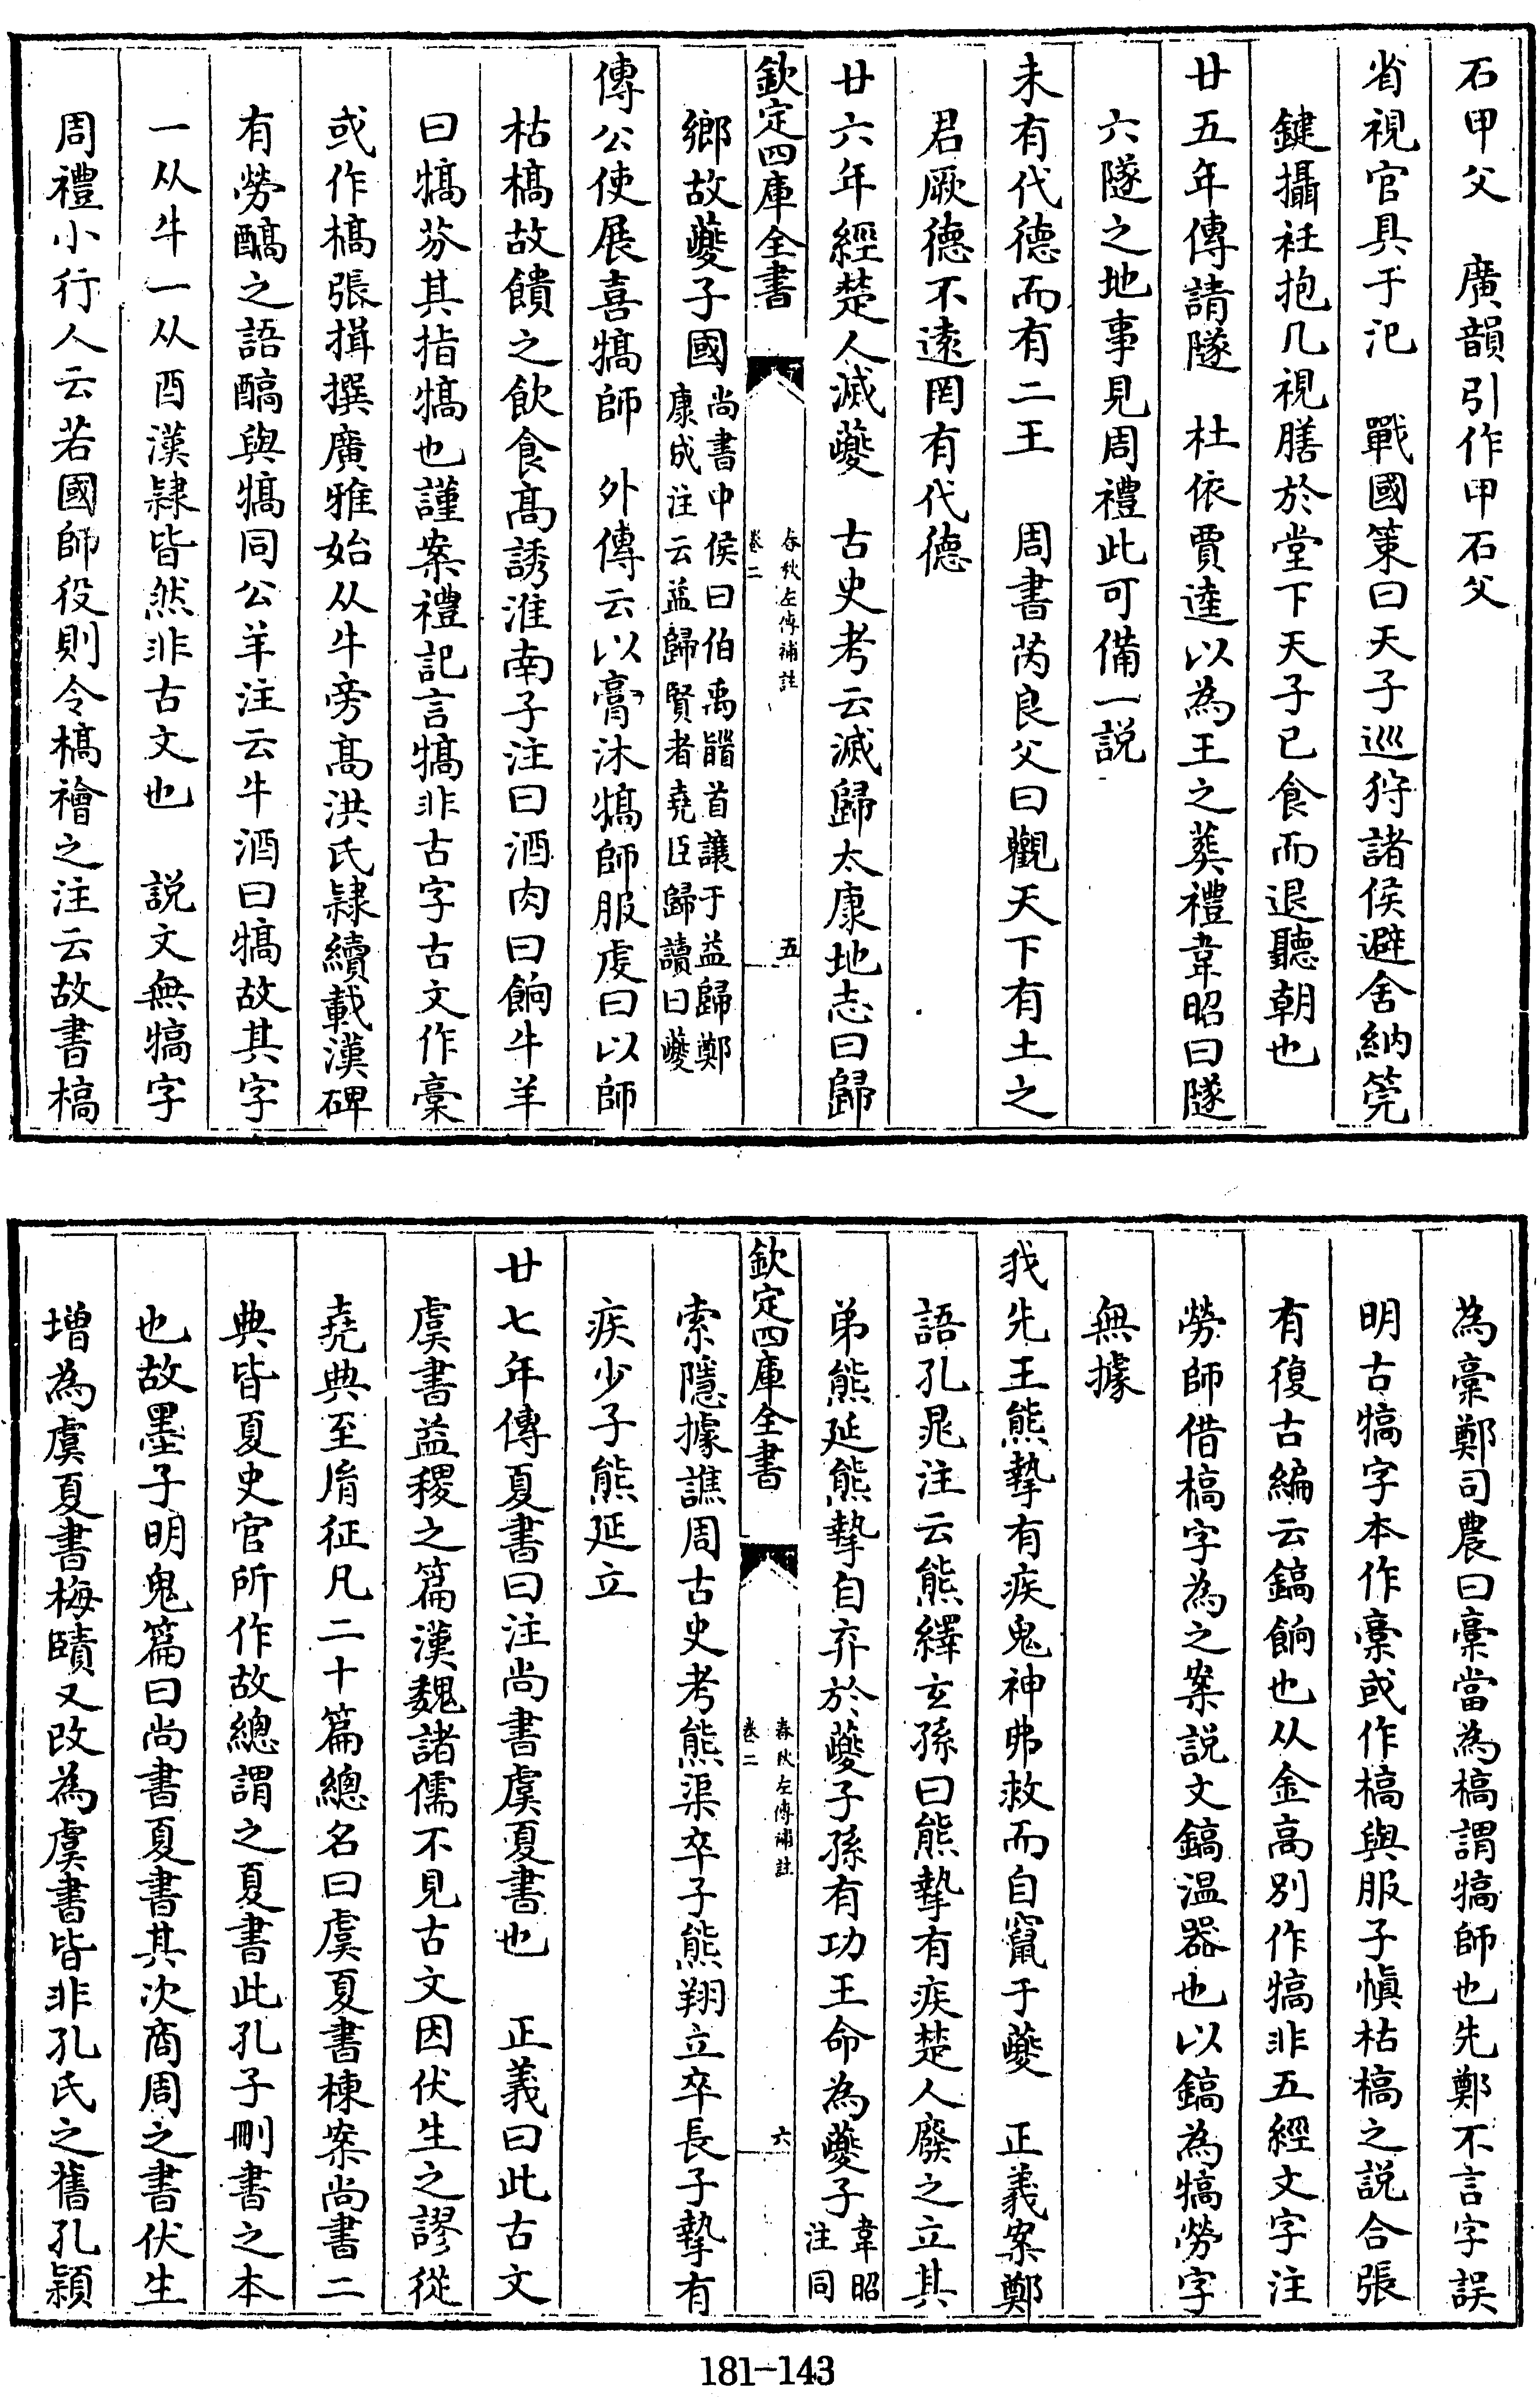 石甲父　廣韻引作甲石父
省視官具于汜　戰國策曰天子巡狩諸侯避舍納筦
鍵攝衽抱几視膳於堂下天子已食而退聽朝也
廿五年傳請隧　杜依賈逵以為王之葬禮韋昭曰隧
六隧之地事見周禮此可備一説
未有代德而有二王　周書芮良父曰觀天下有土之
君厥德不逺罔有代德
廿六年經楚人滅夔　古史考云滅歸太康地志曰歸
欽定四庫全書
春秋左傳補註
卷二
五
鄉故夔子國
尚書中侯曰伯禹䭫首讓于益歸鄭
康成注云益歸賢者堯臣歸讀曰夔
傳公使展喜犒師　外傳云以膏沐犒師服虔曰以師
枯槁故饋之飲食高誘淮南子注曰酒肉曰餉牛羊
曰犒芬其指犒也謹案禮記言犒非古字古文作槀
或作槁張揖撰廣雅始从牛旁高洪氏隸續載漢碑
有勞醕之語醕與犒同公羊注云牛酒曰犒故其字
一从牛一从酉漢隸皆然非古文也　説文無犒字
周禮小行人云若國師役則令槁禬之注云故書槁
為槀鄭司農曰槀當為槁謂犒師也先鄭不言字誤
明古犒字本作槀或作槁與服子愼枯槁之説合張
有復古編云鎬餉也从金高别作犒非五經文字注
勞師借槁字為之案説文鎬温器也以鎬為犒勞字
無據
我先王熊摯有疾鬼神弗救而自竄于夔　正義案鄭
語孔晁注云熊繹玄孫曰熊摯有疾楚人廢之立其
弟熊延熊摯自弃於夔子孫有功王命為夔子
韋昭
注同
欽定四庫全書
春秋左傳補註
卷二
六
索隱據譙周古史考熊渠卒子熊翔立卒長子摯有
疾少子熊延立
廿七年傳夏書曰注尚書虞夏書也　正義曰此古文
虞書益稷之篇漢魏諸儒不見古文因伏生之謬從
堯典至胤征凡二十篇總名曰虞夏書棟案尚書二
典皆夏史官所作故總謂之夏書此孔子刪書之本
也故墨子明鬼篇曰尚書夏書其次商周之書伏生
增為虞夏書梅賾又改為虞書皆非孔氏之舊孔穎
181-143